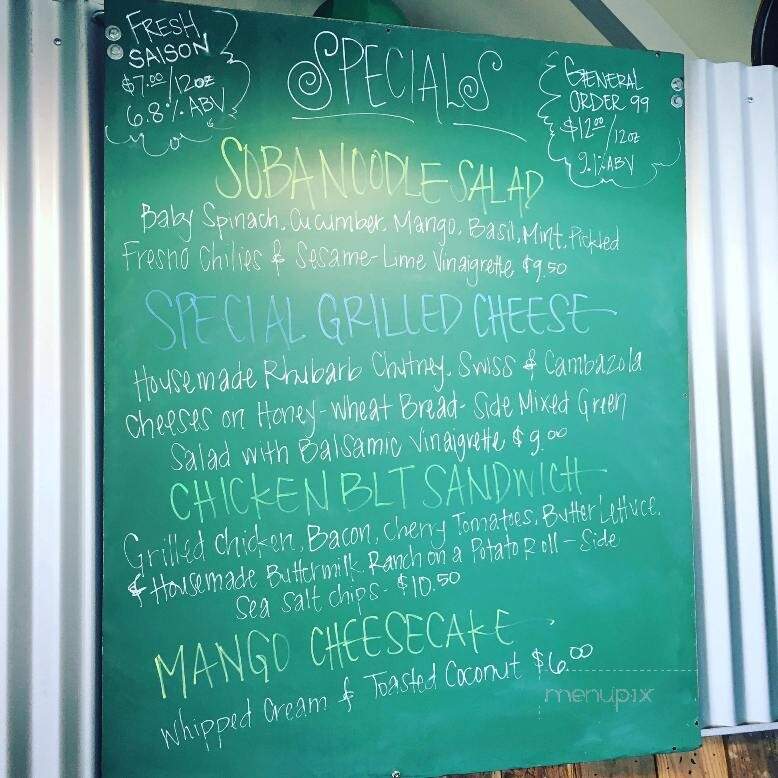 FRESH
SAISON
$7.00/12oz
6.8% ABV
SPECIALS
GENERAL
ORDER 99
$12.00/12oz
9.1% ABV
SOBA NOODLE SALAD
Baby Spinach, Cucumber, Mango, Basil, Mint, Pickled
Fresno Chilies & Sesame-Lime Vinaigrette $9.50
SPECIAL GRILLED CHEESE
Housemade Rhubarb Chutney, Swiss & Cambazola
Cheeses on Honey-Wheat Bread - Side Mixed Green
Salad with Balsamic Vinaigrette $9.00
CHICKEN BLT SANDWICH
Grilled Chicken, Bacon, Cherry Tomatoes, Butter Lettuce,
& Housemade Buttermilk Ranch on a Potato Roll - Side
Sea Salt Chips - $10.50
MANGO CHEESECAKE
Whipped Cream & Toasted Coconut $6.00
menupix